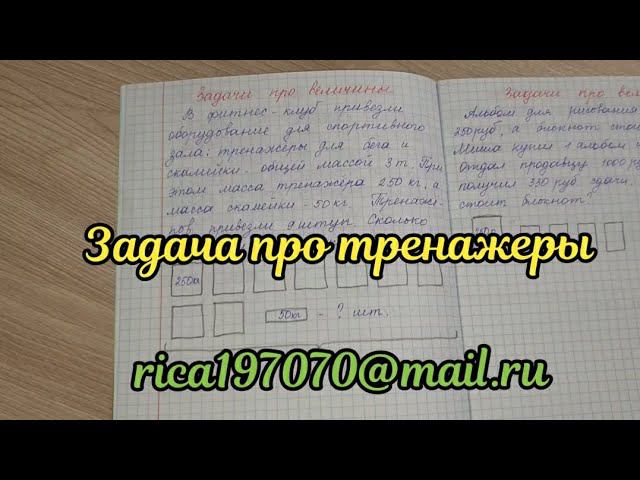 Задачи про величины
В фитнес-клуб привезли
оборудование для спортивного
зала: тренажеры для бега и
скамейки - общей массой 3 т. При
этом масса тренажёра 250 кг, а
масса скамейки - 50 кг. Тренаже-
ров привезли 9 штук. Сколько
250кг
50кг - ? шт.
Задачи про
Альбом для рисования
250 руб, а блокнот
Миша купил 1 альбом
Отдал продавцу 1000
получил 330 руб сдачи.
стоит блокнот?
Задача про тренажеры
rica197070@mail.ru